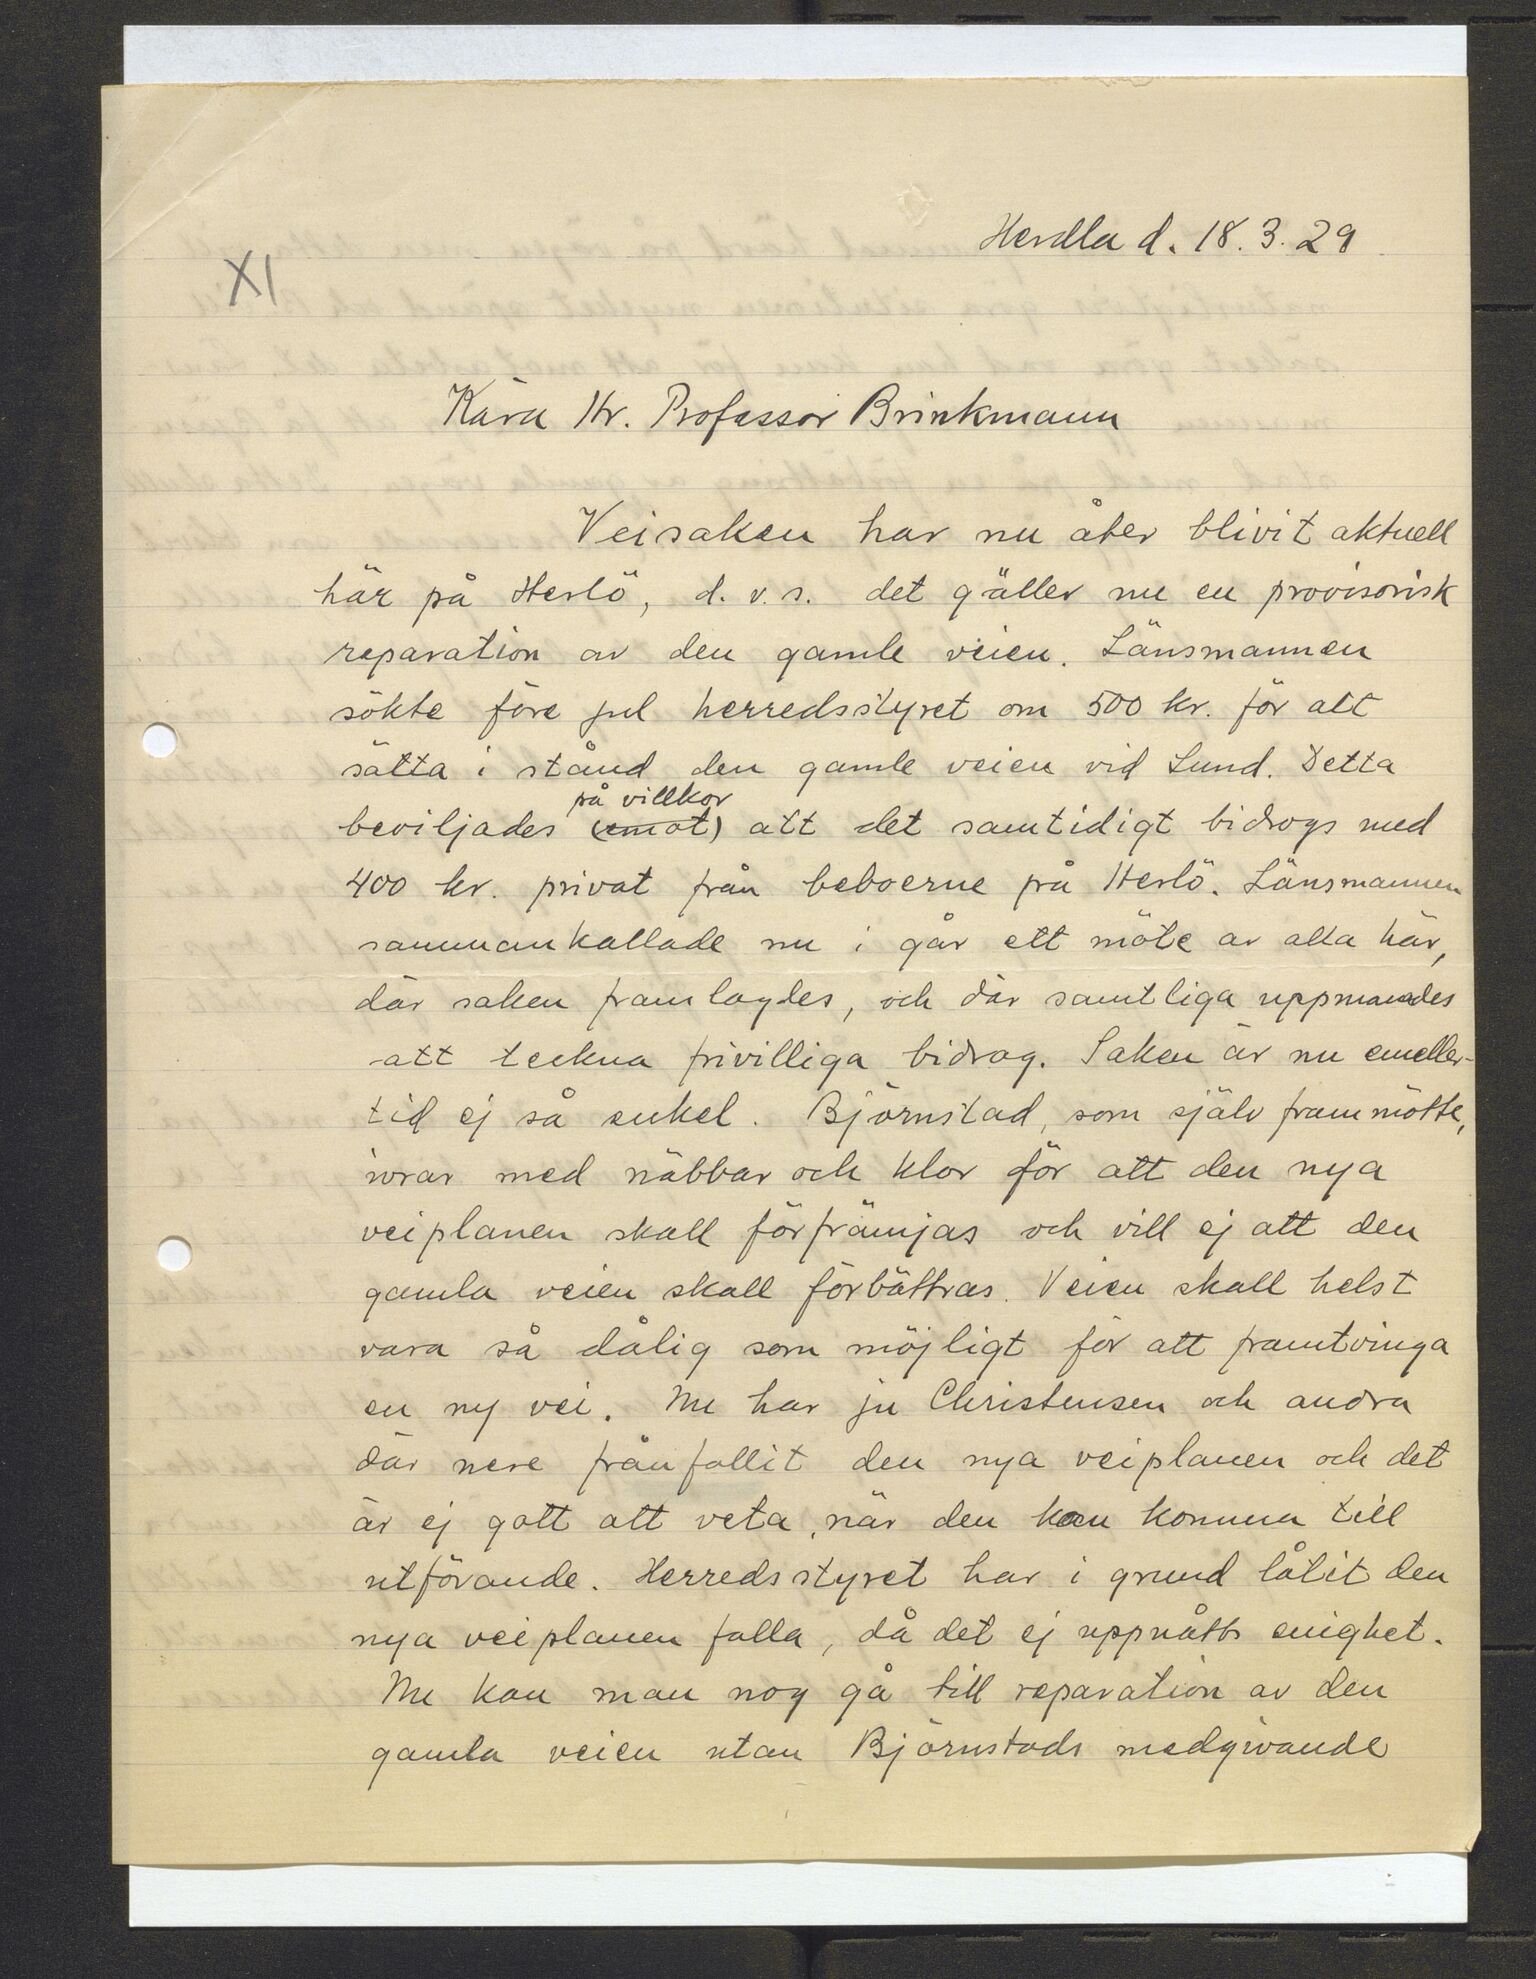 Herdla d. 18.3.29
XI
Kära Hr. Professor Brinkmann
Veisaken har nu åter blivit aktuell
här på Herlö, d. v. s. det gäller nu en provisorisk
reparation av den gamle veien. Länsmannen
sökte före jul herredsstyret om 500 kr. för att
sätta i stånd den gamle veien vid Lund. Detta
på villkor
beviljades (emot) att det samtidigt bidrogs med
400 kr. privat från beboerne på Herlö. Länsmannen
sammankallade nu i går ett möte av alla här,
där saken framlagdes, och där samtliga uppmanades
att teckna frivilliga bidrag. Saken är nu emeller-
tid ej så enkel. Björnstad, som själv frammötte,
ivrar med näbbar och klor för att den nya
veiplanen skall förfrämjas och vill ej att den
gamla veien skall förbättras. Veien skall helst
vara så dålig som möjligt för att framtvinga
en ny vei. Nu har ju Christensen och andra
där nere frånfallit den nya veiplanen och det
är ej gott att veta, när den kan komma till
utförande. Herredsstyret har i grund låtit den
nya veiplanen falla, då det ej uppnåtts enighet.
Nu kan man nog gå till reparation av den
gamla veien utan Björnstads medgivande